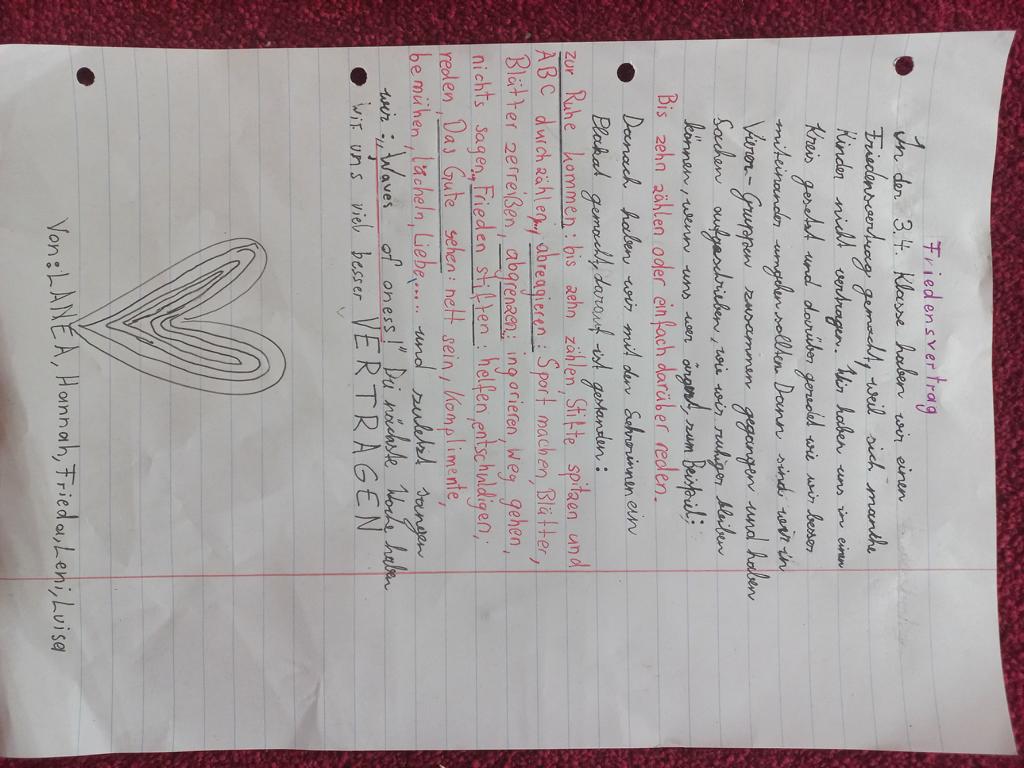 Friedensvertrag
In der 3.4. Klasse haben wir einen
Friedensvertrag gemacht, weil sich manche
Kinder nicht vertragen. Wir haben uns in einen
Kreis gesetzt und darüber geredet wie wir besser
miteinander umgehen sollten. Dann sind wir in
Vierer-Gruppen zusammen gegangen und haben
Sachen aufgeschrieben, wie wir ruhiger bleiben
können, wenn uns wer ärgert, zum Beispiel:
Bis zehn zählen oder einfach darüber reden.
Danach haben wir mit den Lehrerinnen ein
Plakat gemacht, darauf ist gestanden:
zur Ruhe kommen: bis zehn zählen, Stifte spitzen und
ABC durchzählen, abreagieren: Sport machen, Blätter,
Blätter zerreißen, abgrenzen: ingorieren, weg gehen,
nichts sagen, Frieden stiften: helfen, entschuldigen,
reden, Das Gute sehen: nett sein, Komplimente,
bemühen, lächeln, Liebe,... und zuletzt sangen
wir: „Waves of oness!" Die nächste Woche haben
wir uns viel besser VERTRAGEN
Von: LANEA, Hannah, Frieda, Leni, Luisa